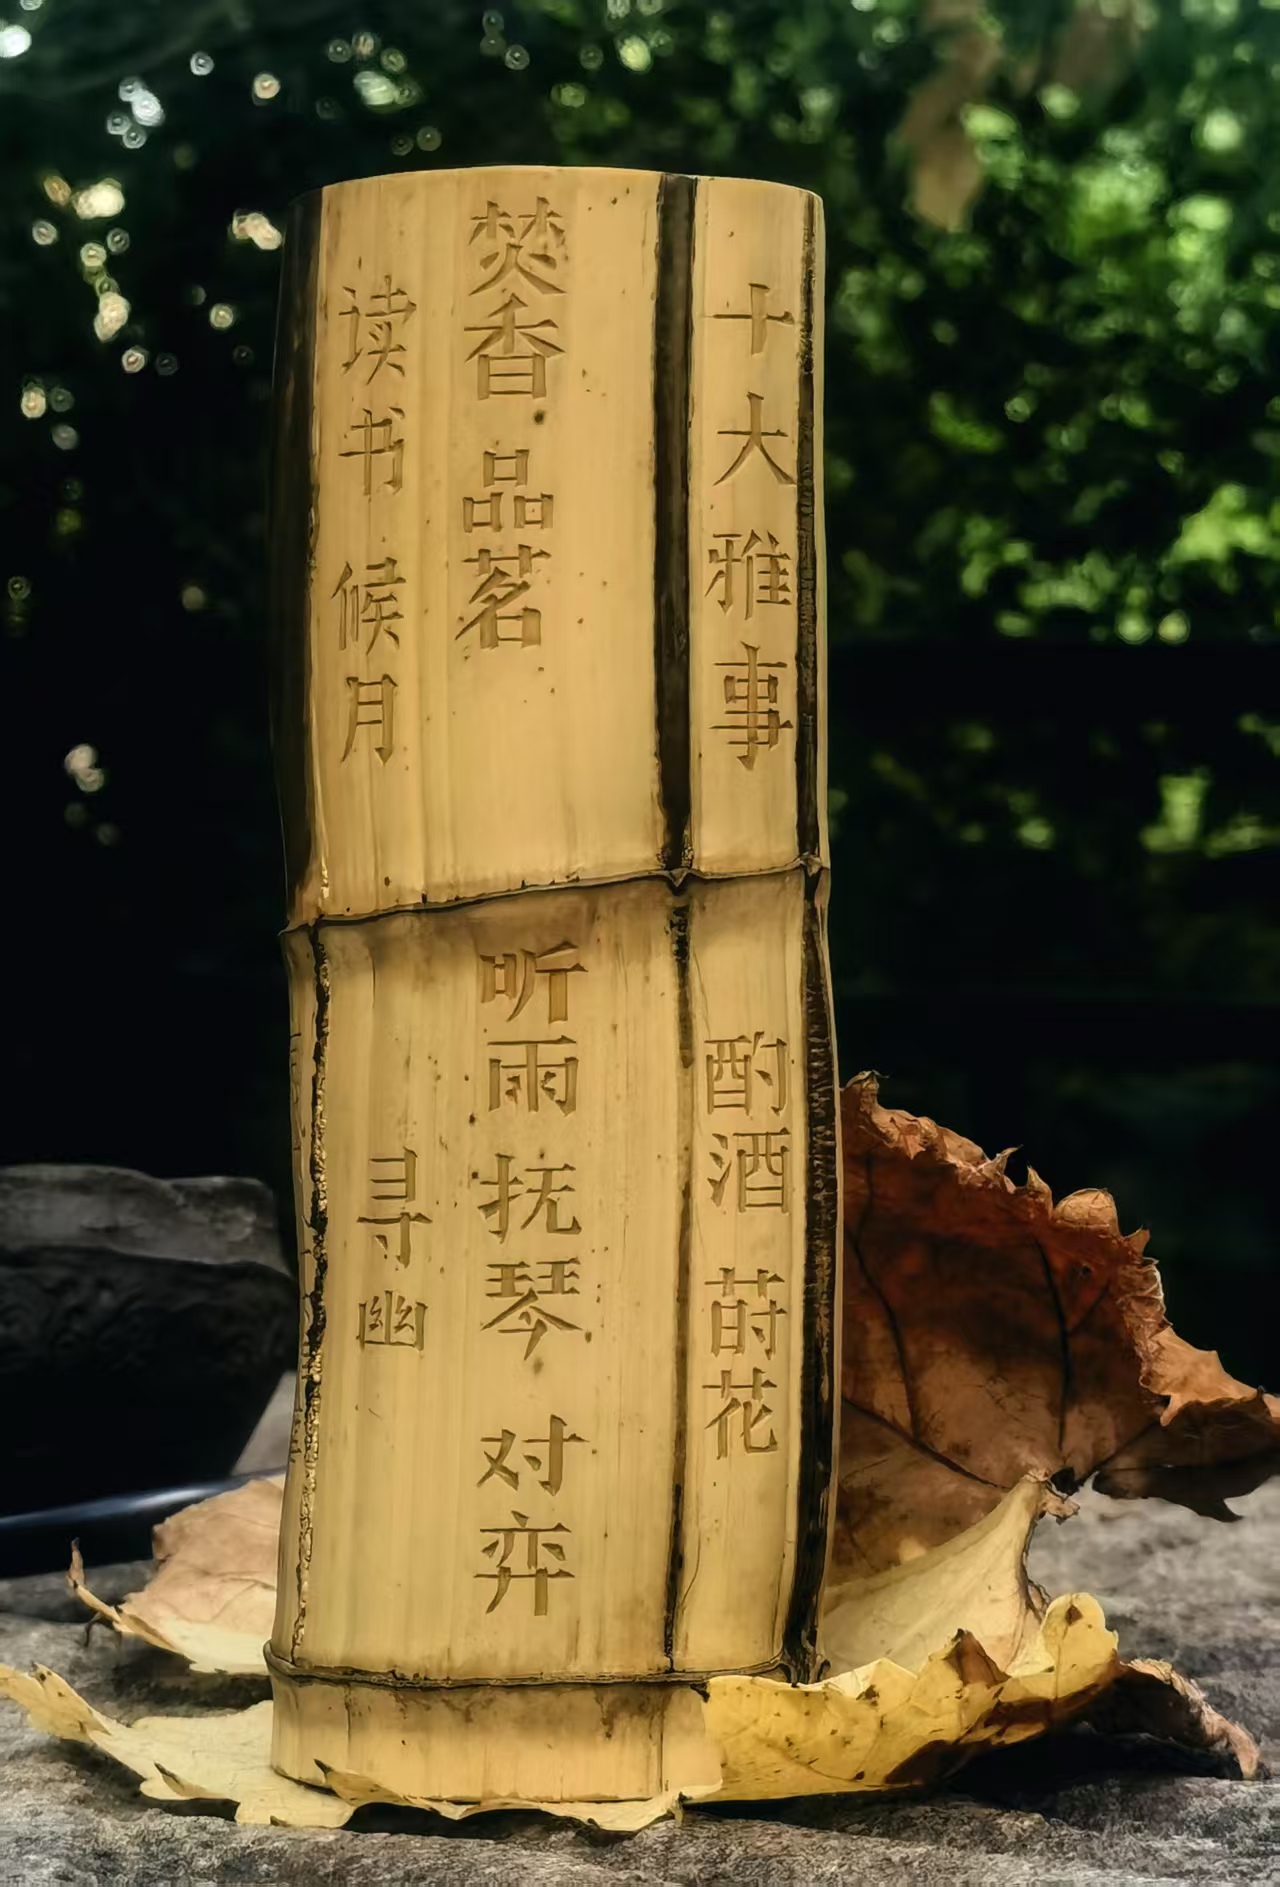 十大雅事
焚香 品茗
读书 候月
酌酒 莳花
听雨 抚琴 对弈
寻幽